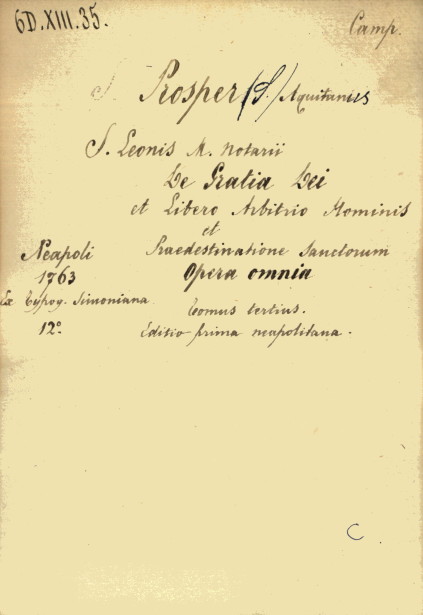 6D.XIII.35.
Camp.
S. Prosper (S.) Aquitanus
S. Leonis M. Notarii
De Gratia Dei
et Libero Arbitrio Hominis
et
Neapoli Praedestinatione Sanctorum
1763 Opera omnia
Ex Typog. Simoniana Tomus tertius.
12° Editio prima neapolitana.
C